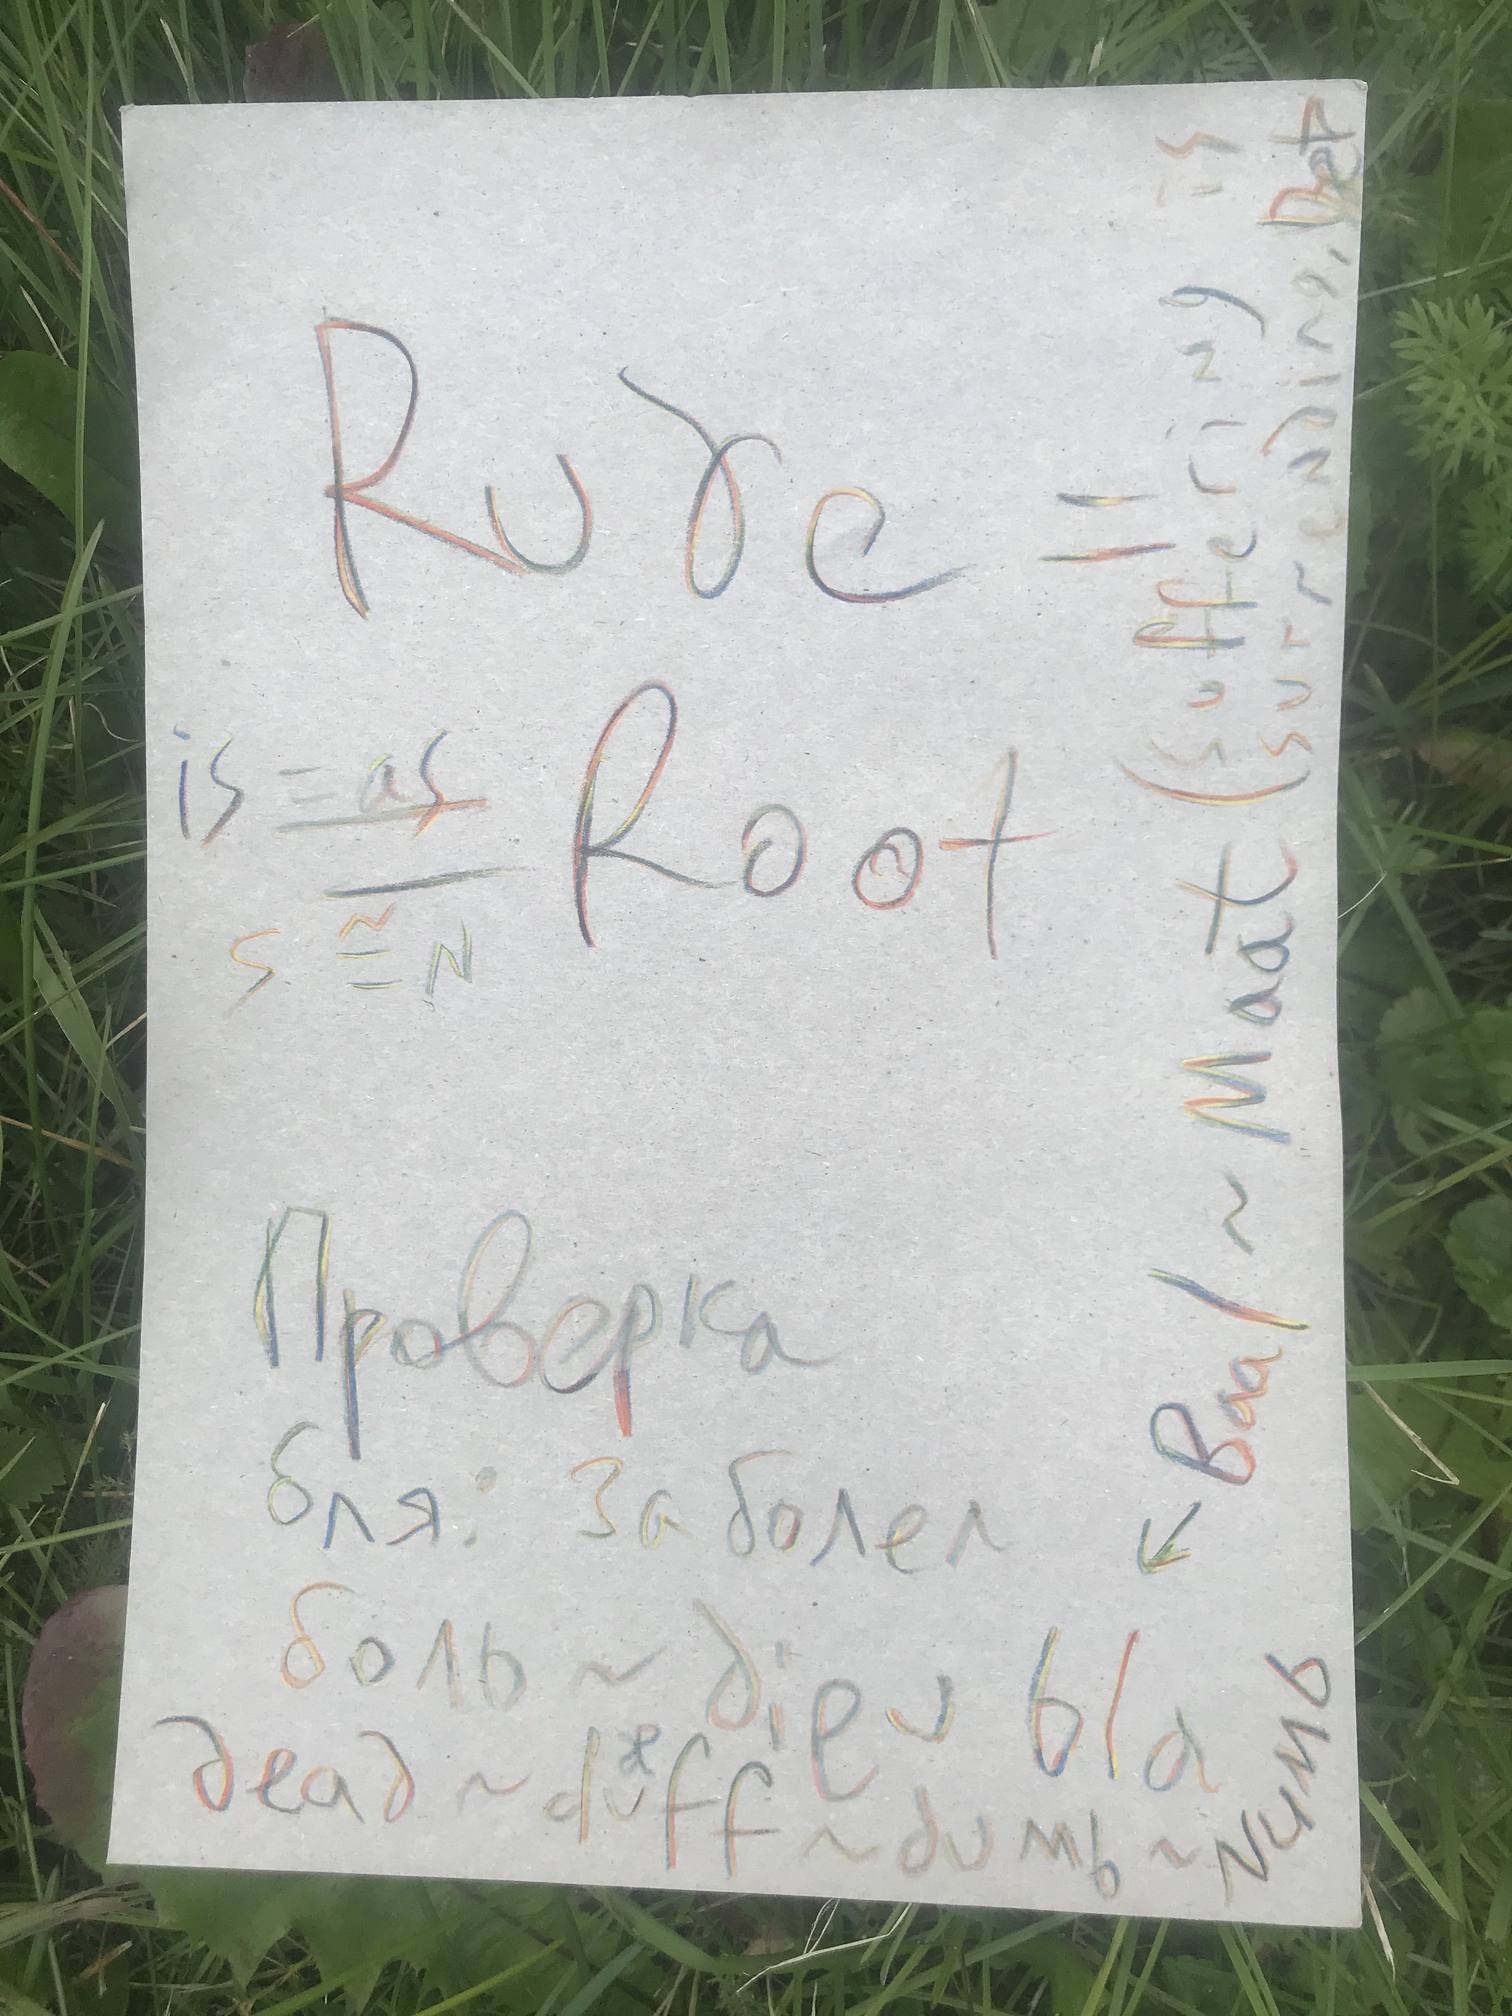 Rude =
is = as
Root
s ≅ N
Проверка
бля: Заболел
боль ~ dieu bla
dead ~ duff ~ dumb ~ NUMB
← Baal ~ Maat (suffering is
surrending, Det